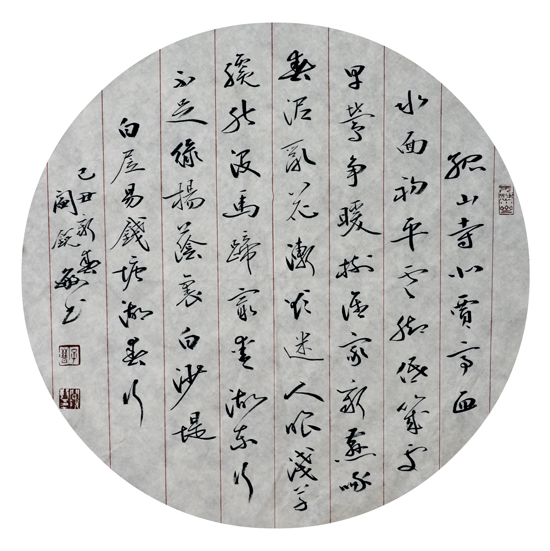 孤山寺北賈亭西
水面初平雲脚低幾處
早鶯争暖樹誰家新燕啄
春泥亂花漸欲迷人眼淺草
纔能没馬蹄最愛湖東行
不足綠楊蔭裏白沙堤
白居易錢塘湖春行
己丑新春
閻銳敏书